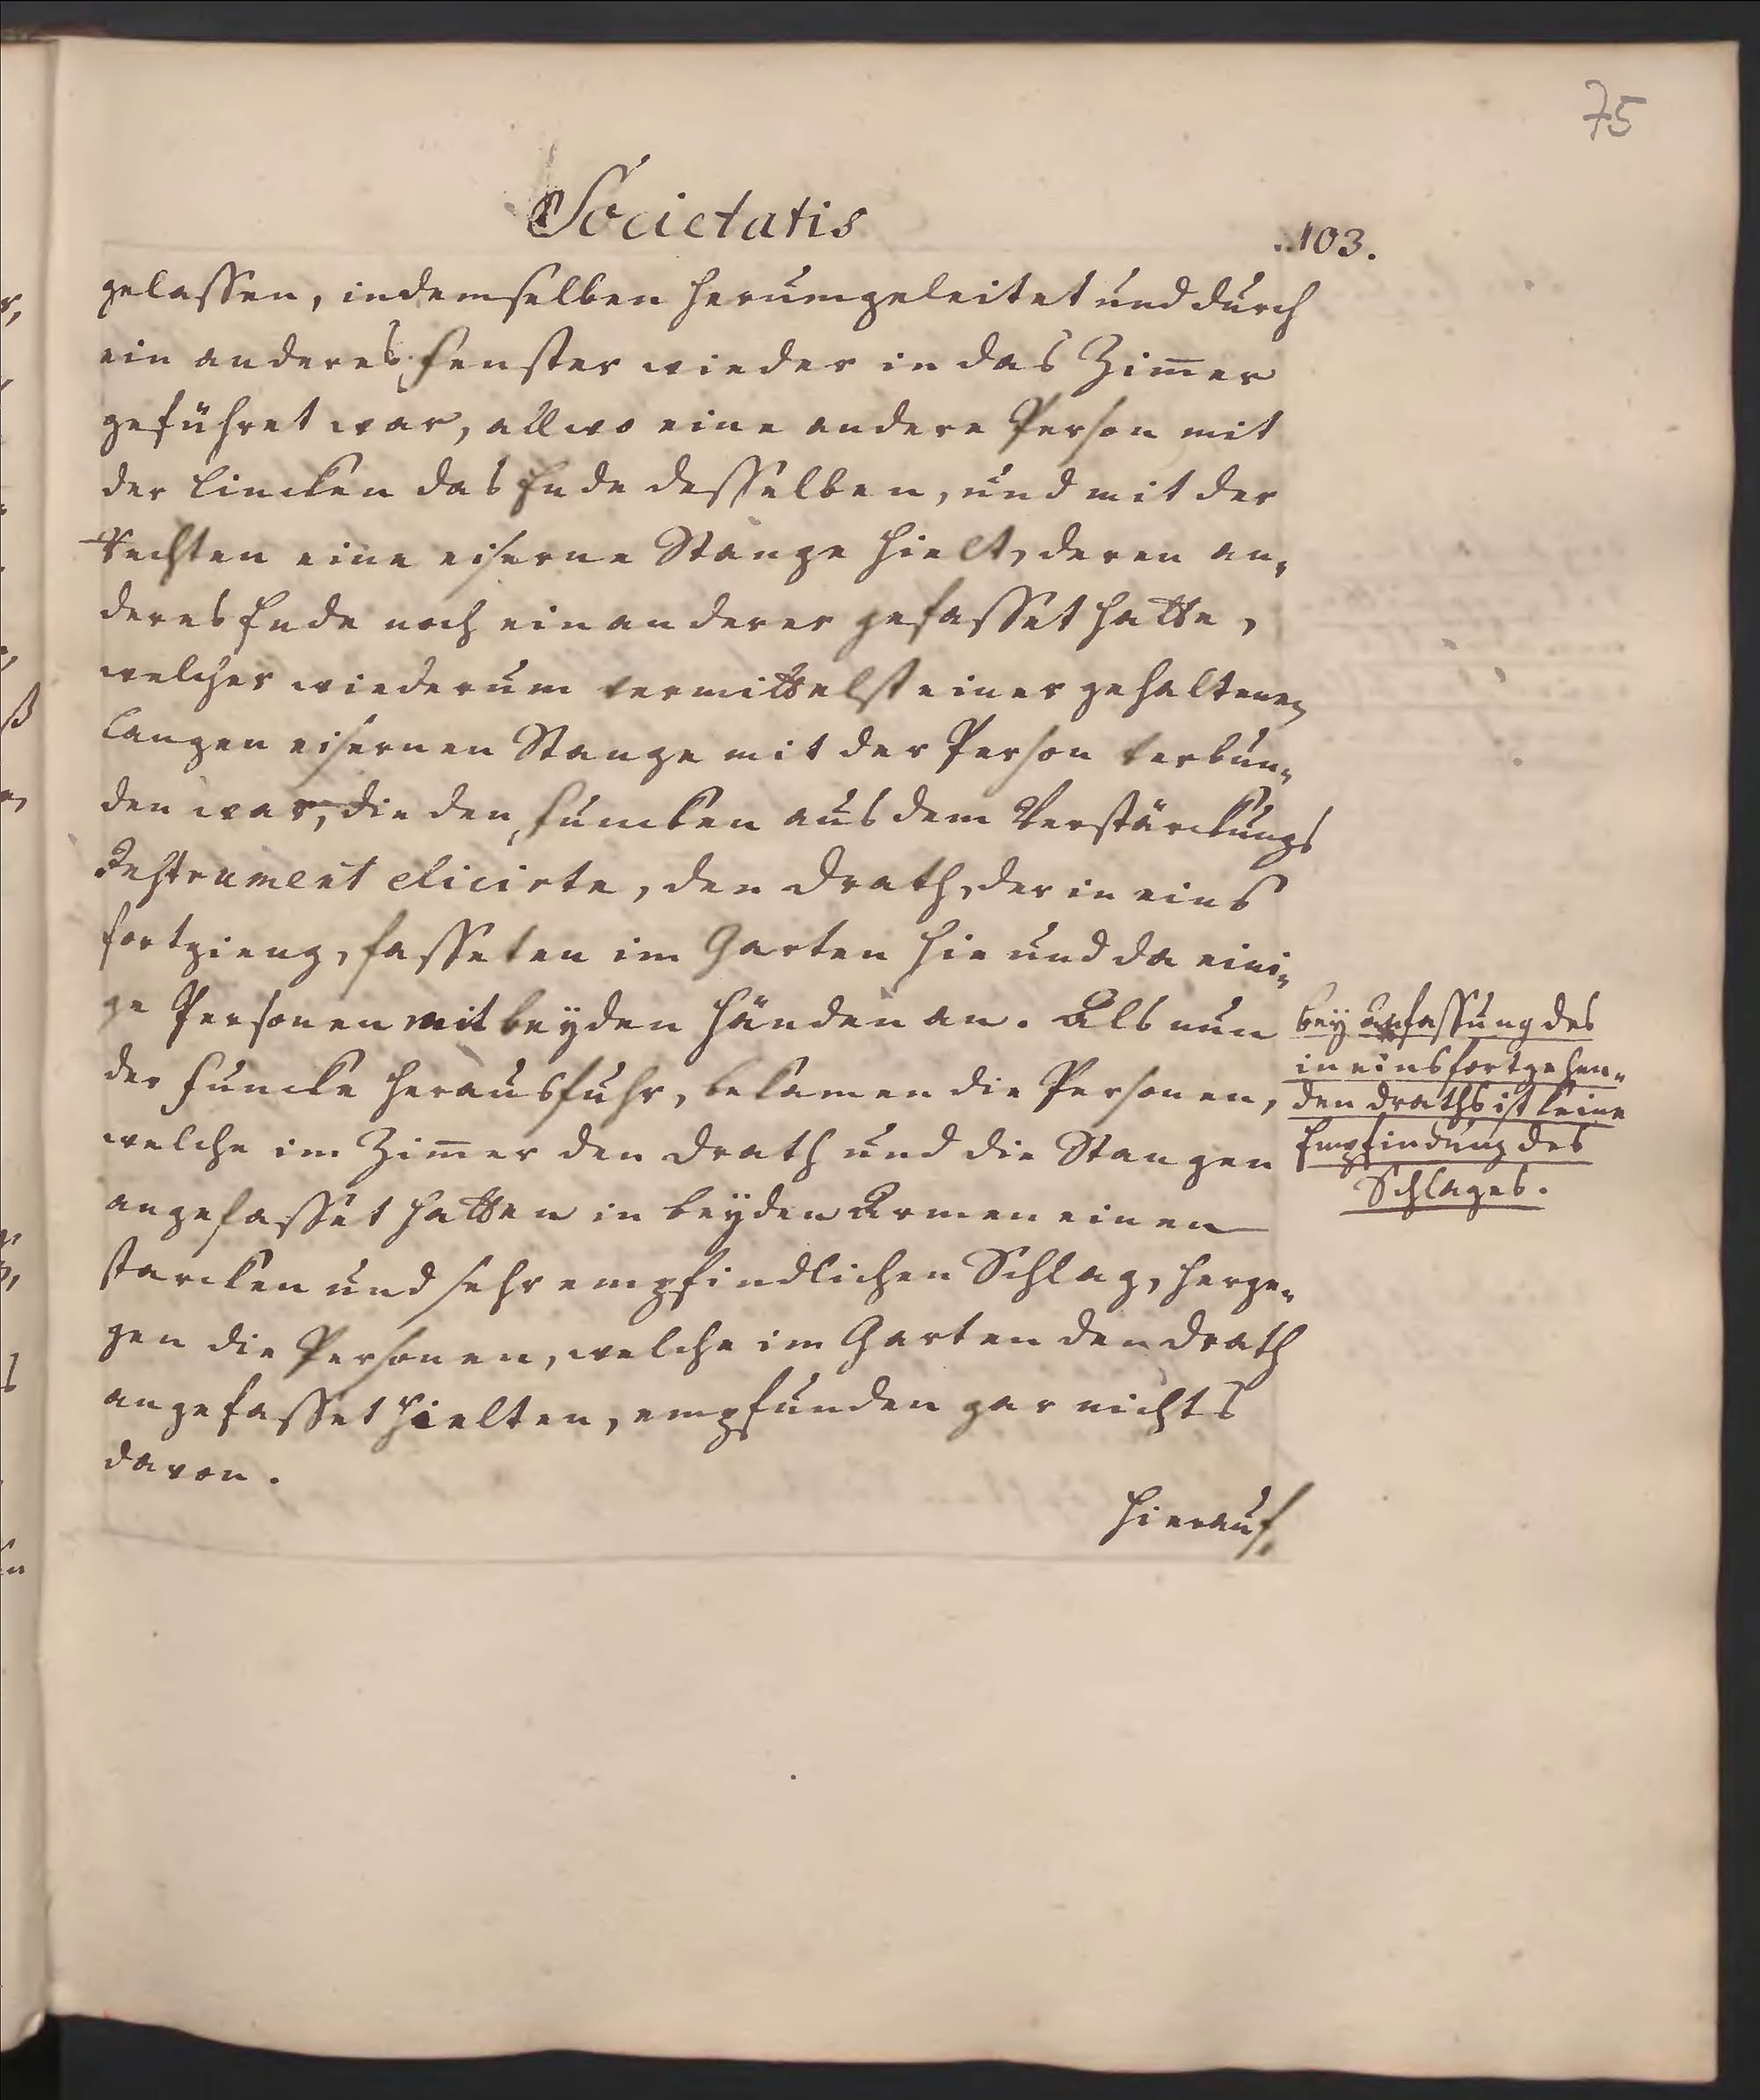 75
Societatis
103.
gelassen, in demselben herumgeleitet und durch
ein anderes Fenster wieder in das Zim̅er
geführet war, allwo eine andere Person mit
der Lincken das Ende desselben, und mit der
Rechten eine eiserne Stange hielt, deren an-
deres Ende noch ein anderer gefasset hatte,
welcher wiederum vermittelst einer gehaltenen
langen eisernen Stange mit der Person verbun-
den war, die den Funcken aus dem Verstärckungs
Instrument elicirte, den Drath, der in eins
fortgieng, fasseten im Garten hie und da eini-
ge Personen mit beyden Händen an. Als nun
der Funcke herausfuhr, bekamen die Personen,
welche im Zim̅er den Drath und die Stangen
angefasset hatten in beyden Armen einen
starcken und sehr empfindlichen Schlag, herge-
gen die Personen, welche im Garten den Drath
angefasset hielten, empfunden gar nichts
davon.
Hierauf
bey Anfassung des
in eins fortgehen-
den Draths ist keine
Empfindung des
Schlages.